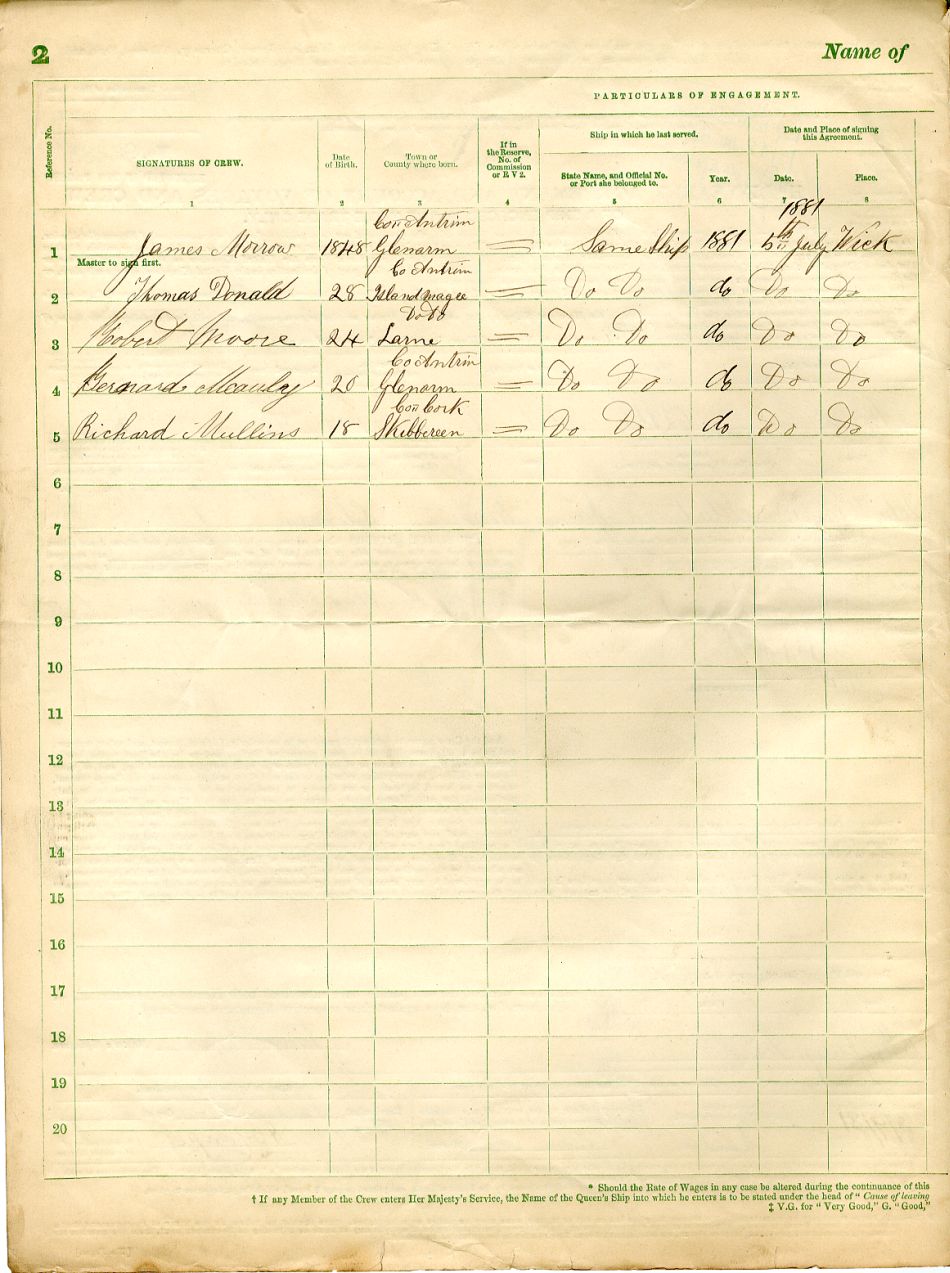 2 Name of
PARTICULARS OF ENGAGEMENT.
Reference No.
SIGNATURES OF CREW.
Date of Birth.
Town or County where born.
If in the Reserve, No. of Commission or R V 2.
Ship in which he last served.
State Name, and Official No. or Port she belonged to.
Year.
Date and Place of signing this Agreement.
Date.
Place.
1 2 3 4 5 6 7 8
1881
Coy Antrim
1 James Morrow 1848 Glenarm = Same Ship 1881 5th July Wick
Master to sign first.
Co Antrim
2 Thomas Donald 28 Islandmagee = Do Do do Do Do
Do Do
3 Robert Moore 24 Larne = Do Do do Do Do
Co Antrim
4 Bernard Mcauly 20 Glenarm = Do Do do Do Do
Coy Cork
5 Richard Mullins 18 Skibbereen = Do Do do Do Do
6
7
8
9
10
11
12
13
14
15
16
17
18
19
20
* Should the Rate of Wages in any case be altered during the continuance of this
† If any Member of the Crew enters Her Majesty's Service, the Name of the Queen's Ship into which he enters is to be stated under the head of "Cause of leaving
‡ V.G. for "Very Good," G. "Good,"